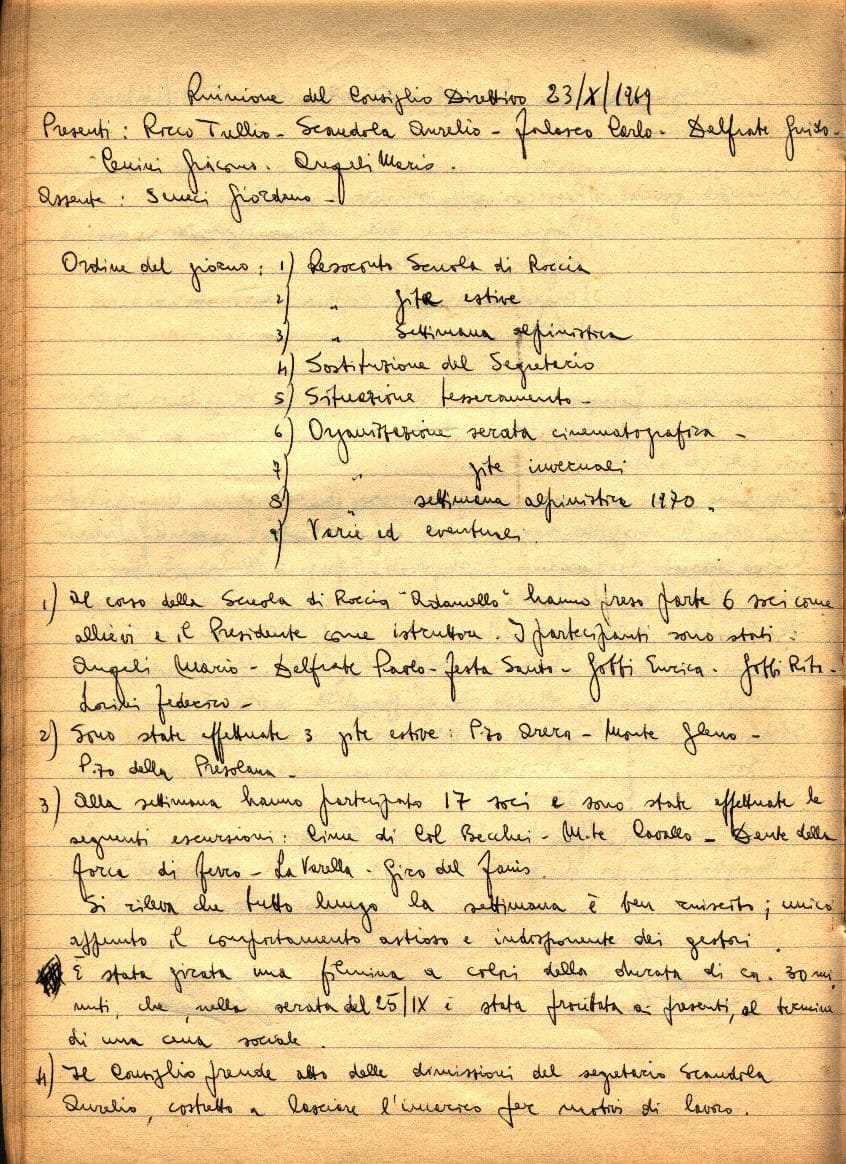 Riunione del Consiglio Direttivo 23/X/1969
Presenti: Rocco Tullio - Scandola Aurelio - Falasco Carlo - Delfrate Guido -
Cenini Giacomo. Angeli Mario.
Assente: Seneci Giordano -
Ordine del giorno: 1) Resoconto Scuola di Roccia
2) " gite estive
3) " Settimana alpinistica
4) Sostituzione del Segretario
5) Situazione tesseramento -
6) Organizzazione serata cinematografica -
7) " gite invernali
8) " settimana alpinistica 1970.
9) Varie ed eventuali.
1) Al corso della Scuola di Roccia "Adamello" hanno preso parte 6 soci come
allievi e il Presidente come istruttore. I partecipanti sono stati:
Angeli Mario - Delfrate Paolo - Festa Santo - Gobbi Enrica - Gobbi Rita -
Federico -
2) Sono state effettuate 3 gite estive: P.zo Arera - Monte Gleno -
P.zo della Presolana -
3) Alla settimana hanno partecipato 17 soci e sono state effettuate le
seguenti escursioni: Cima di Col Becchei - M.te Cavallo - Dente della
forca di ferro - La Varella - Giro del Fanis.
Si rileva che tutto lungo la settimana è ben riuscito; unico
appunto il comportamento astioso e indisponente dei gestori.
È stata girata una filmina a colori della durata di ca. 30 mi
nuti, che, nella serata del 25/IX è stata proiettata ai presenti, al termine
di una cena sociale.
4) Il Consiglio prende atto delle dimissioni del segretario Scandola
Aurelio, costretto a lasciare l'incarico per motivi di lavoro.